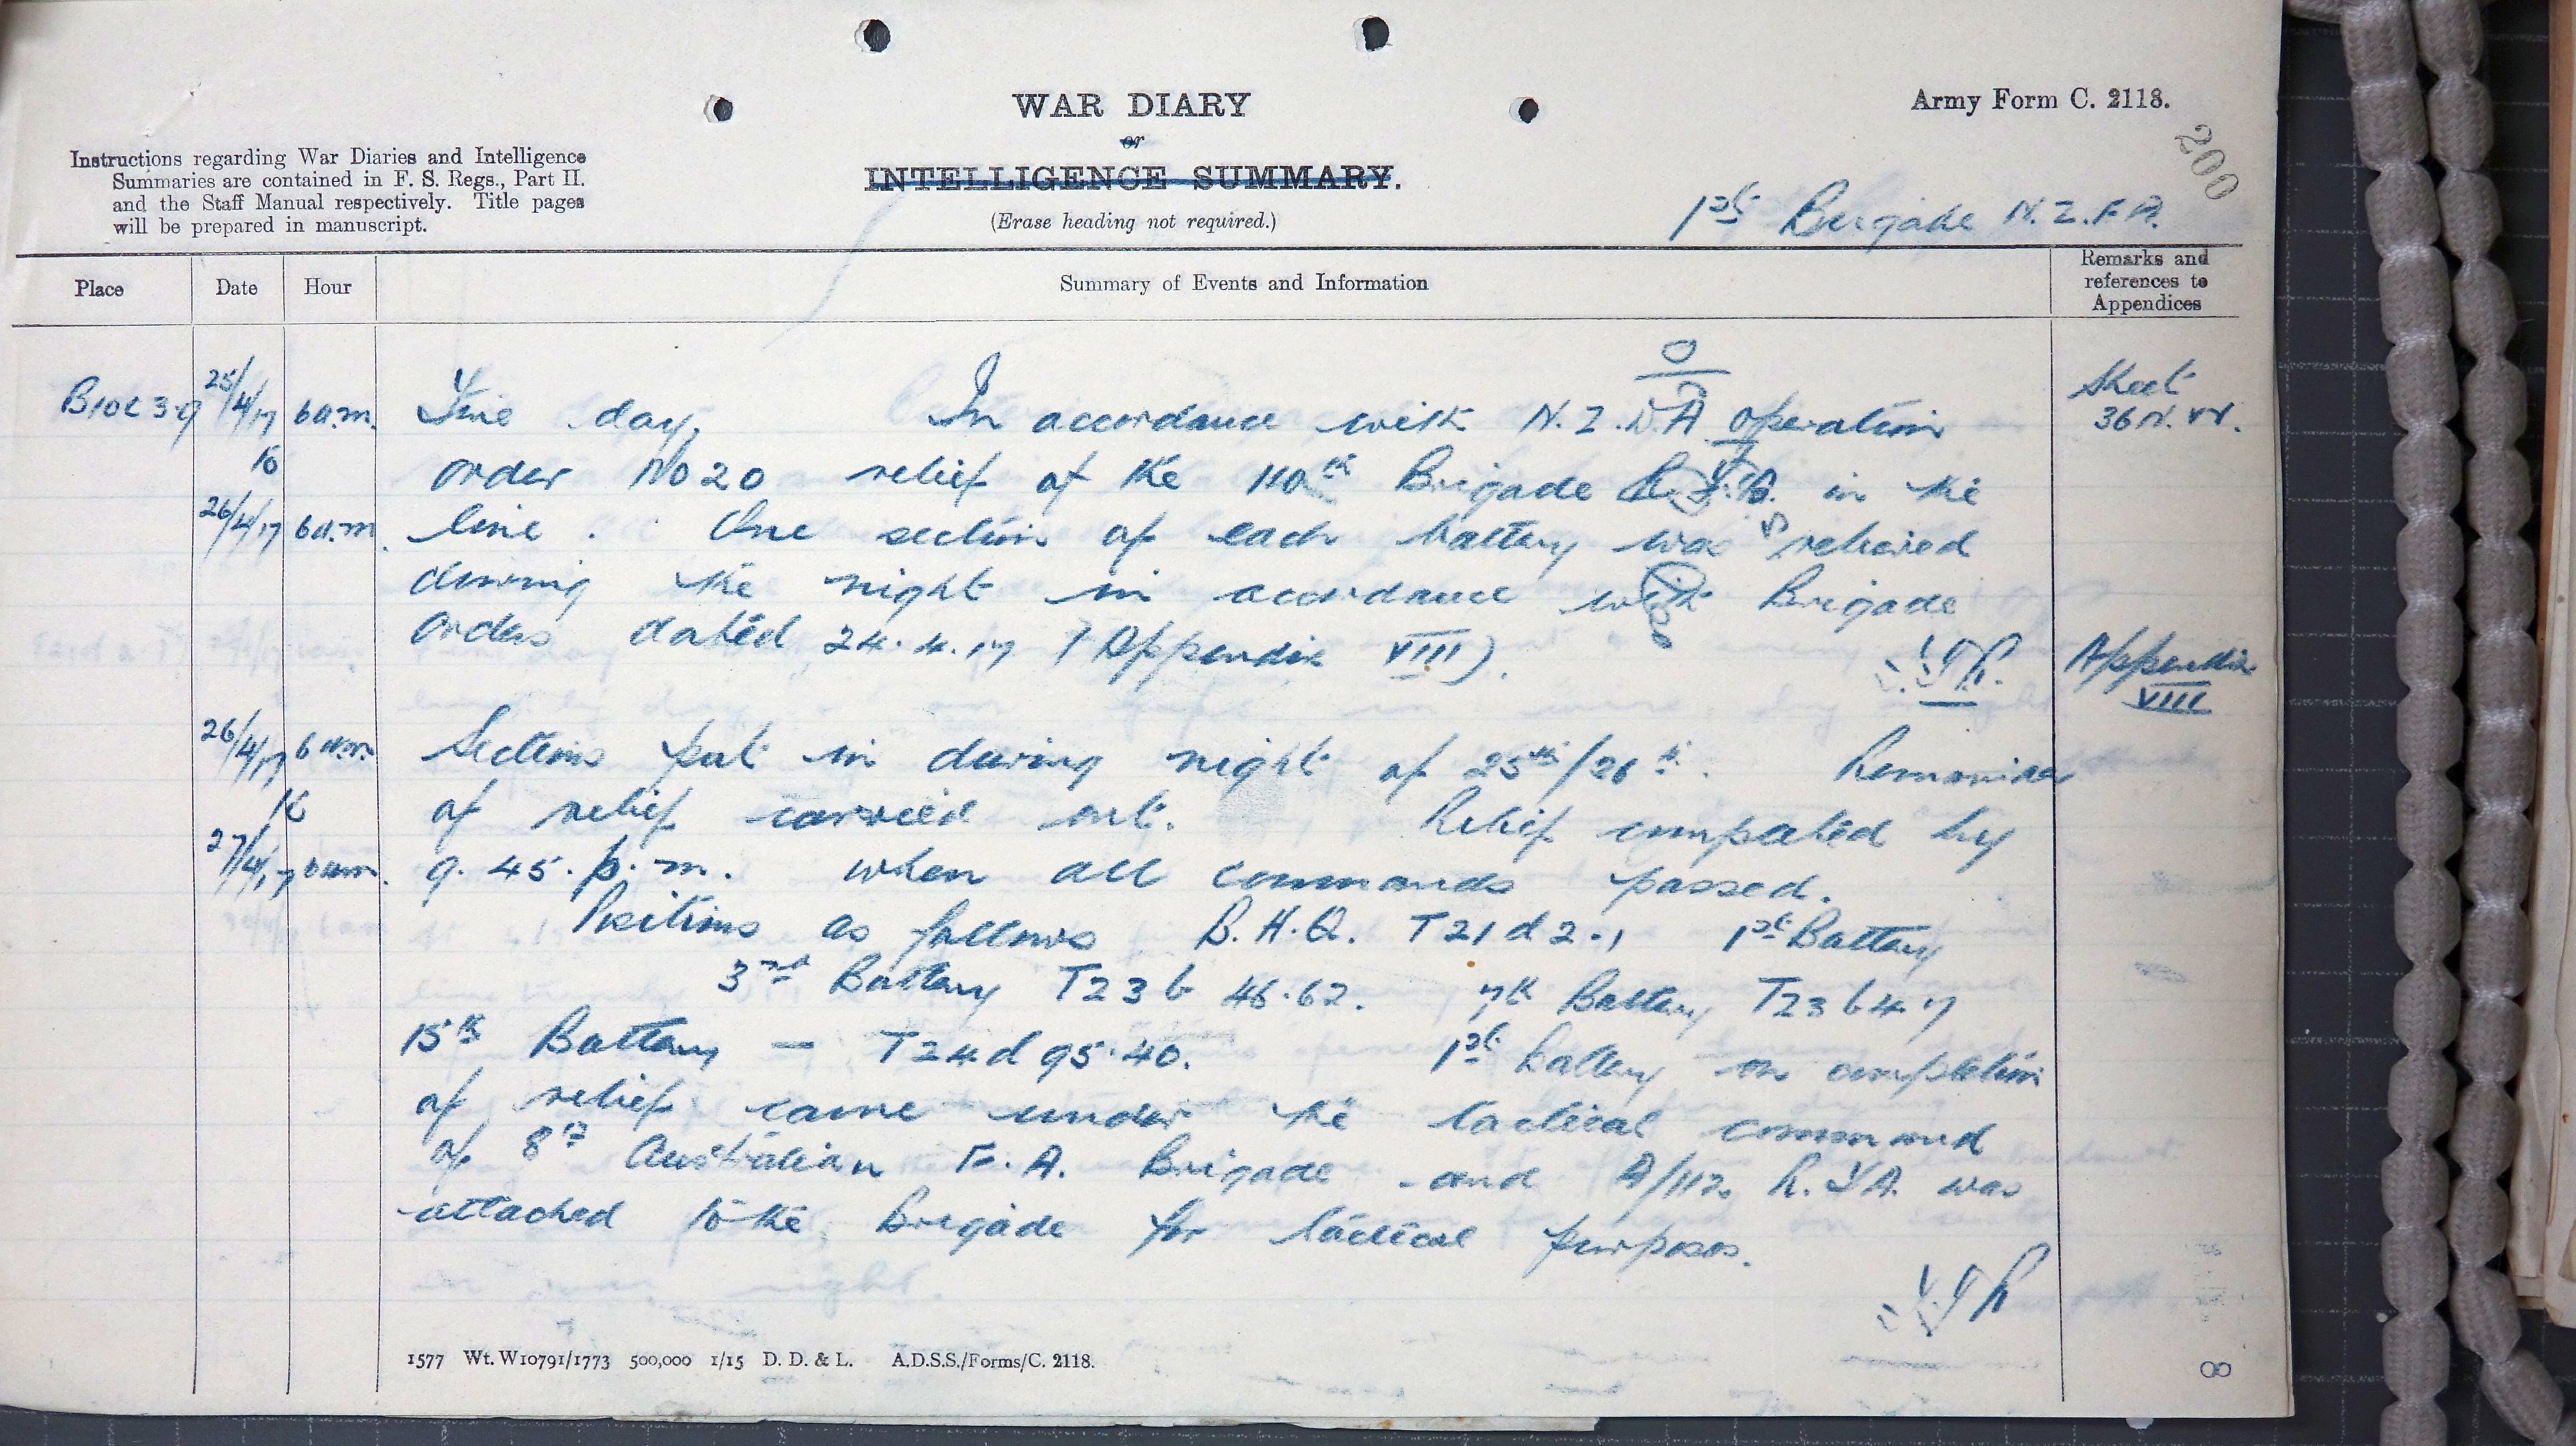 WAR DIARY
or
INTELLIGENCE SUMMARY.
(Erase heading not required.)
Army Form C. 2118.
200
Instructions regarding War Diaries and Intelligence
Summaries are contained in F. S. Regs., Part II.
and the Staff Manual respectively. Title pages
will be prepared in manuscript.
1st Brigade N.Z.F.A.
Place Date Hour Summary of Events and Information Remarks and references to Appendices
B10c3.9 25/4/17 6a.m. Fine day. In accordance with N.Z.D.A operation Sheet
36 N.W.
to order No 20 relief of the 110th Brigade R.F.A. in the
26/4/17 6a.m. line. One section of each battery was relieved
during the night in accordance with Brigade
orders dated 24.4.17 (Appendix VIII). Appendix
VIII
26/4/17 6 a.m. Sections put in during night of 25th/26th. Remainder
to of relief carried out. Relief completed by
27/4/17 6am. 9.45.p.m. when all commands passed.
Positions as follows B.H.Q. T21d2.1 1st Battery
3rd Battery T23b 46.62. 7th Battery T23b4.7
15th Battery — T24d95.40. 1st battery on completion
of relief came under the tactical command
of 8th Australian F.A. Brigade and A/112. R.F.A. was
attached to the Brigade for tactical purposes.
1577 Wt. W10791/1773 500,000 1/15 D. D. & L. A.D.S.S./Forms/C. 2118.
8